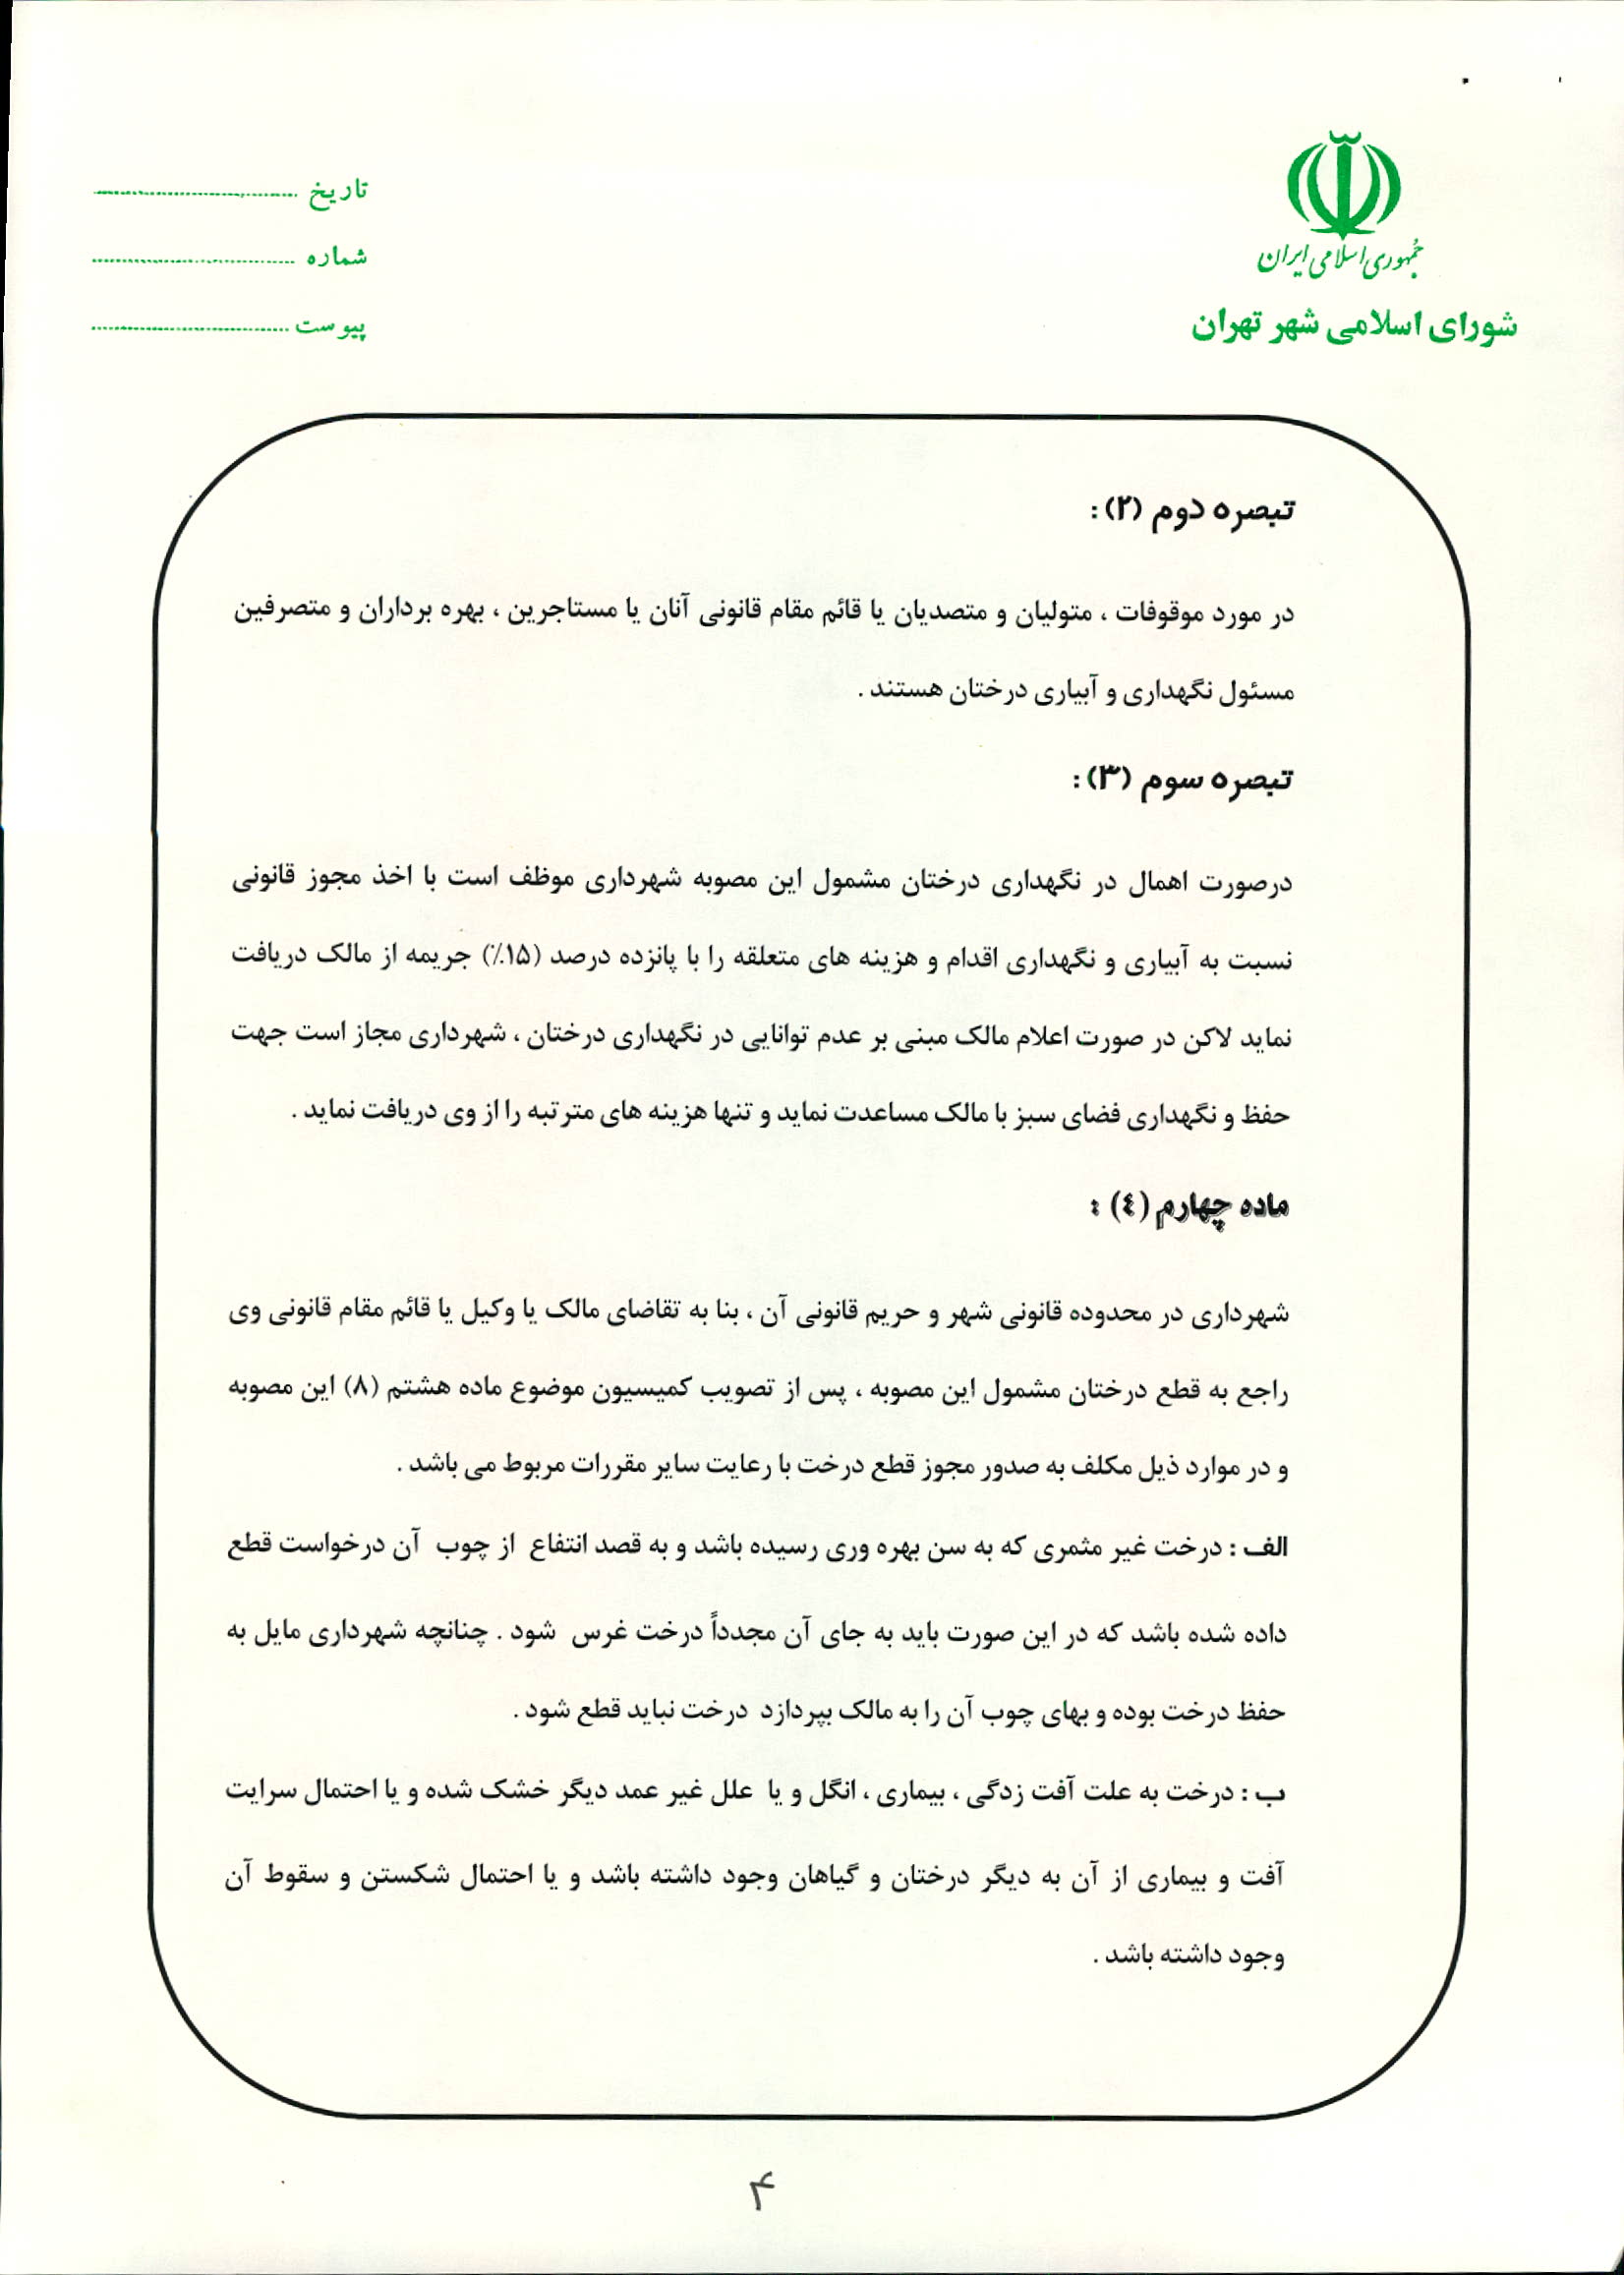 جمهوری اسلامی ایران
شورای اسلامی شهر تهران
تاریخ ................................
شماره ................................
پیوست ................................
تبصره دوم (۲) :
در مورد موقوفات ، متولیان و متصدیان یا قائم مقام قانونی آنان یا مستاجرین ، بهره برداران و متصرفین
مسئول نگهداری و آبیاری درختان هستند .
تبصره سوم (۳) :
درصورت اهمال در نگهداری درختان مشمول این مصوبه شهرداری موظف است با اخذ مجوز قانونی
نسبت به آبیاری و نگهداری اقدام و هزینه های متعلقه را با پانزده درصد (۱۵٪) جریمه از مالک دریافت
نماید لاکن در صورت اعلام مالک مبنی بر عدم توانایی در نگهداری درختان ، شهرداری مجاز است جهت
حفظ و نگهداری فضای سبز با مالک مساعدت نماید و تنها هزینه های مترتبه را از وی دریافت نماید .
ماده چهارم (٤) :
شهرداری در محدوده قانونی شهر و حریم قانونی آن ، بنا به تقاضای مالک یا وکیل یا قائم مقام قانونی وی
راجع به قطع درختان مشمول این مصوبه ، پس از تصویب کمیسیون موضوع ماده هشتم (۸) این مصوبه
و در موارد ذیل مکلف به صدور مجوز قطع درخت با رعایت سایر مقررات مربوط می باشد .
الف : درخت غیر مثمری که به سن بهره وری رسیده باشد و به قصد انتفاع از چوب آن درخواست قطع
داده شده باشد که در این صورت باید به جای آن مجدداً درخت غرس شود . چنانچه شهرداری مایل به
حفظ درخت بوده و بهای چوب آن را به مالک بپردازد درخت نباید قطع شود .
ب : درخت به علت آفت زدگی ، بیماری ، انگل و یا علل غیر عمد دیگر خشک شده و یا احتمال سرایت
آفت و بیماری از آن به دیگر درختان و گیاهان وجود داشته باشد و یا احتمال شکستن و سقوط آن
وجود داشته باشد .
۴